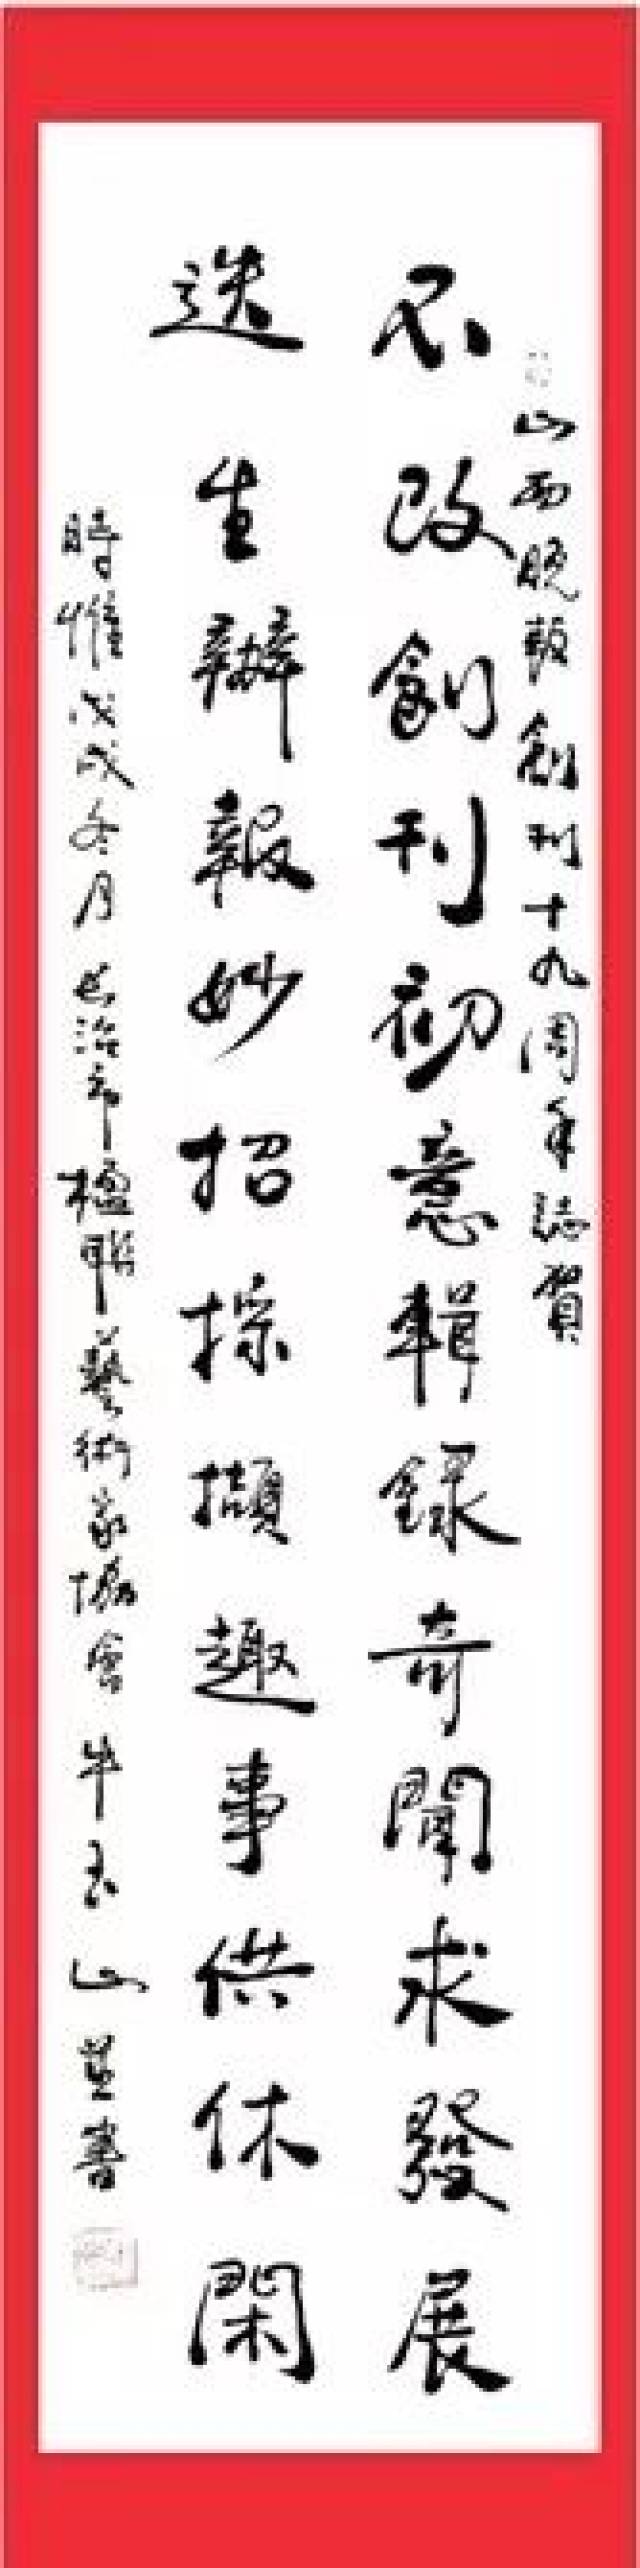 山西晚報創刊十九周年誌賀
不改創刊初意輯錄奇聞求發展
迭生辦報妙招採擷趣事供休閑
時惟戊戌冬月長治市楹聯藝術家協會牛玉山並書